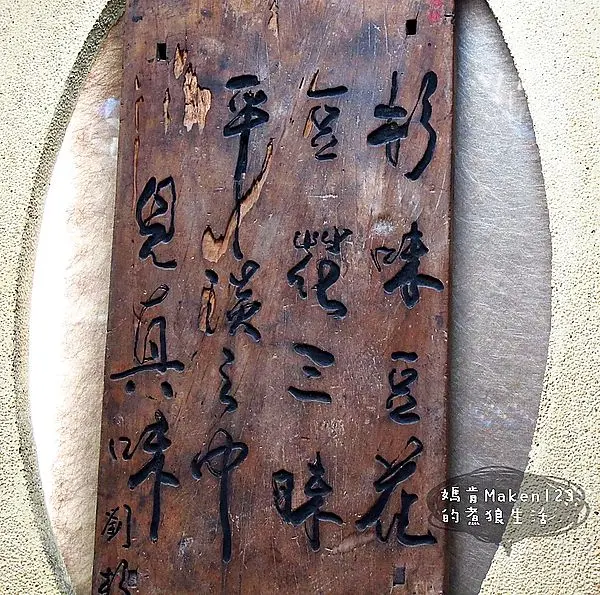 杉味豆花
花三昧
平淡之中
見真味
劉
媽肯Maken123
的煮狼生活